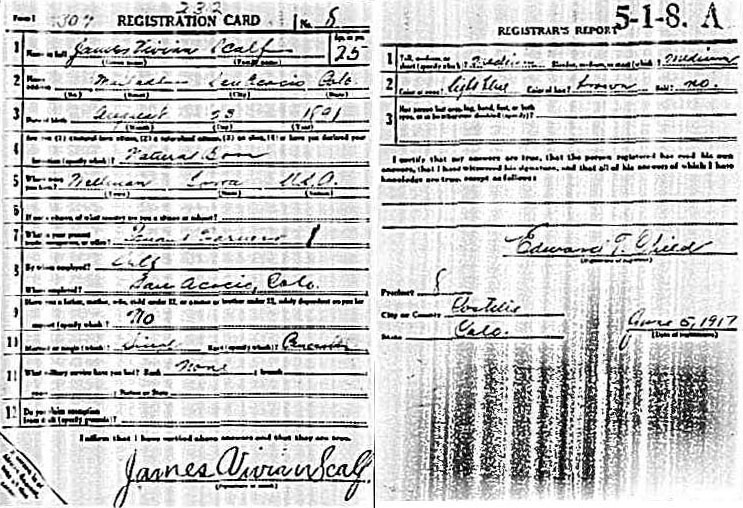 Form 1 307 232 REGISTRATION CARD No. 8
1 Name in full James Vivian Scalf Age, in yrs. 25
(Given name) (Family name)
2 Home address San Acacio Colo
(No.) (Street) (City) (State)
3 Date of birth August 23 1891
(Month) (Day) (Year)
4 Are you (1) a natural-born citizen, (2) a naturalized citizen, (3) an alien, (4) or have you declared your
intention (specify which)? Natural Born
5 Where were you born? Wellman Iowa U.S.A.
(Town) (State) (Nation)
6 If not a citizen, of what country are you a citizen or subject?
7 What is your present trade, occupation, or office? Farmer
8 By whom employed? Self
Where employed? San Acacio, Colo.
9 Have you a father, mother, wife, child under 12, or a sister or brother under 12, solely dependent on you for
support (specify which)? No
10 Married or single (which)? Single Race (specify which)? Caucasian
11 What military service have you had? Rank None branch
years Nation or State
12 Do you claim exemption from draft (specify grounds)?
I affirm that I have verified above answers and that they are true.
James Vivian Scalf
(Signature or mark)
REGISTRAR'S REPORT 5-1-8. A
1 Tall, medium, or short (specify which)? Medium Slender, medium, or stout (which)? Medium
2 Color of eyes? light blue Color of hair? brown Bald? no.
3 Has person lost arm, leg, hand, foot, or both eyes, or is he otherwise disabled (specify)?
I certify that my answers are true, that the person registered has read his own
answers, that I have witnessed his signature, and that all of his answers of which I have
knowledge are true, except as follows:
Edward T. Shield
(Signature of registrar)
Precinct 8
City or County Costilla
State Colo. June 5, 1917
(Date of registration)